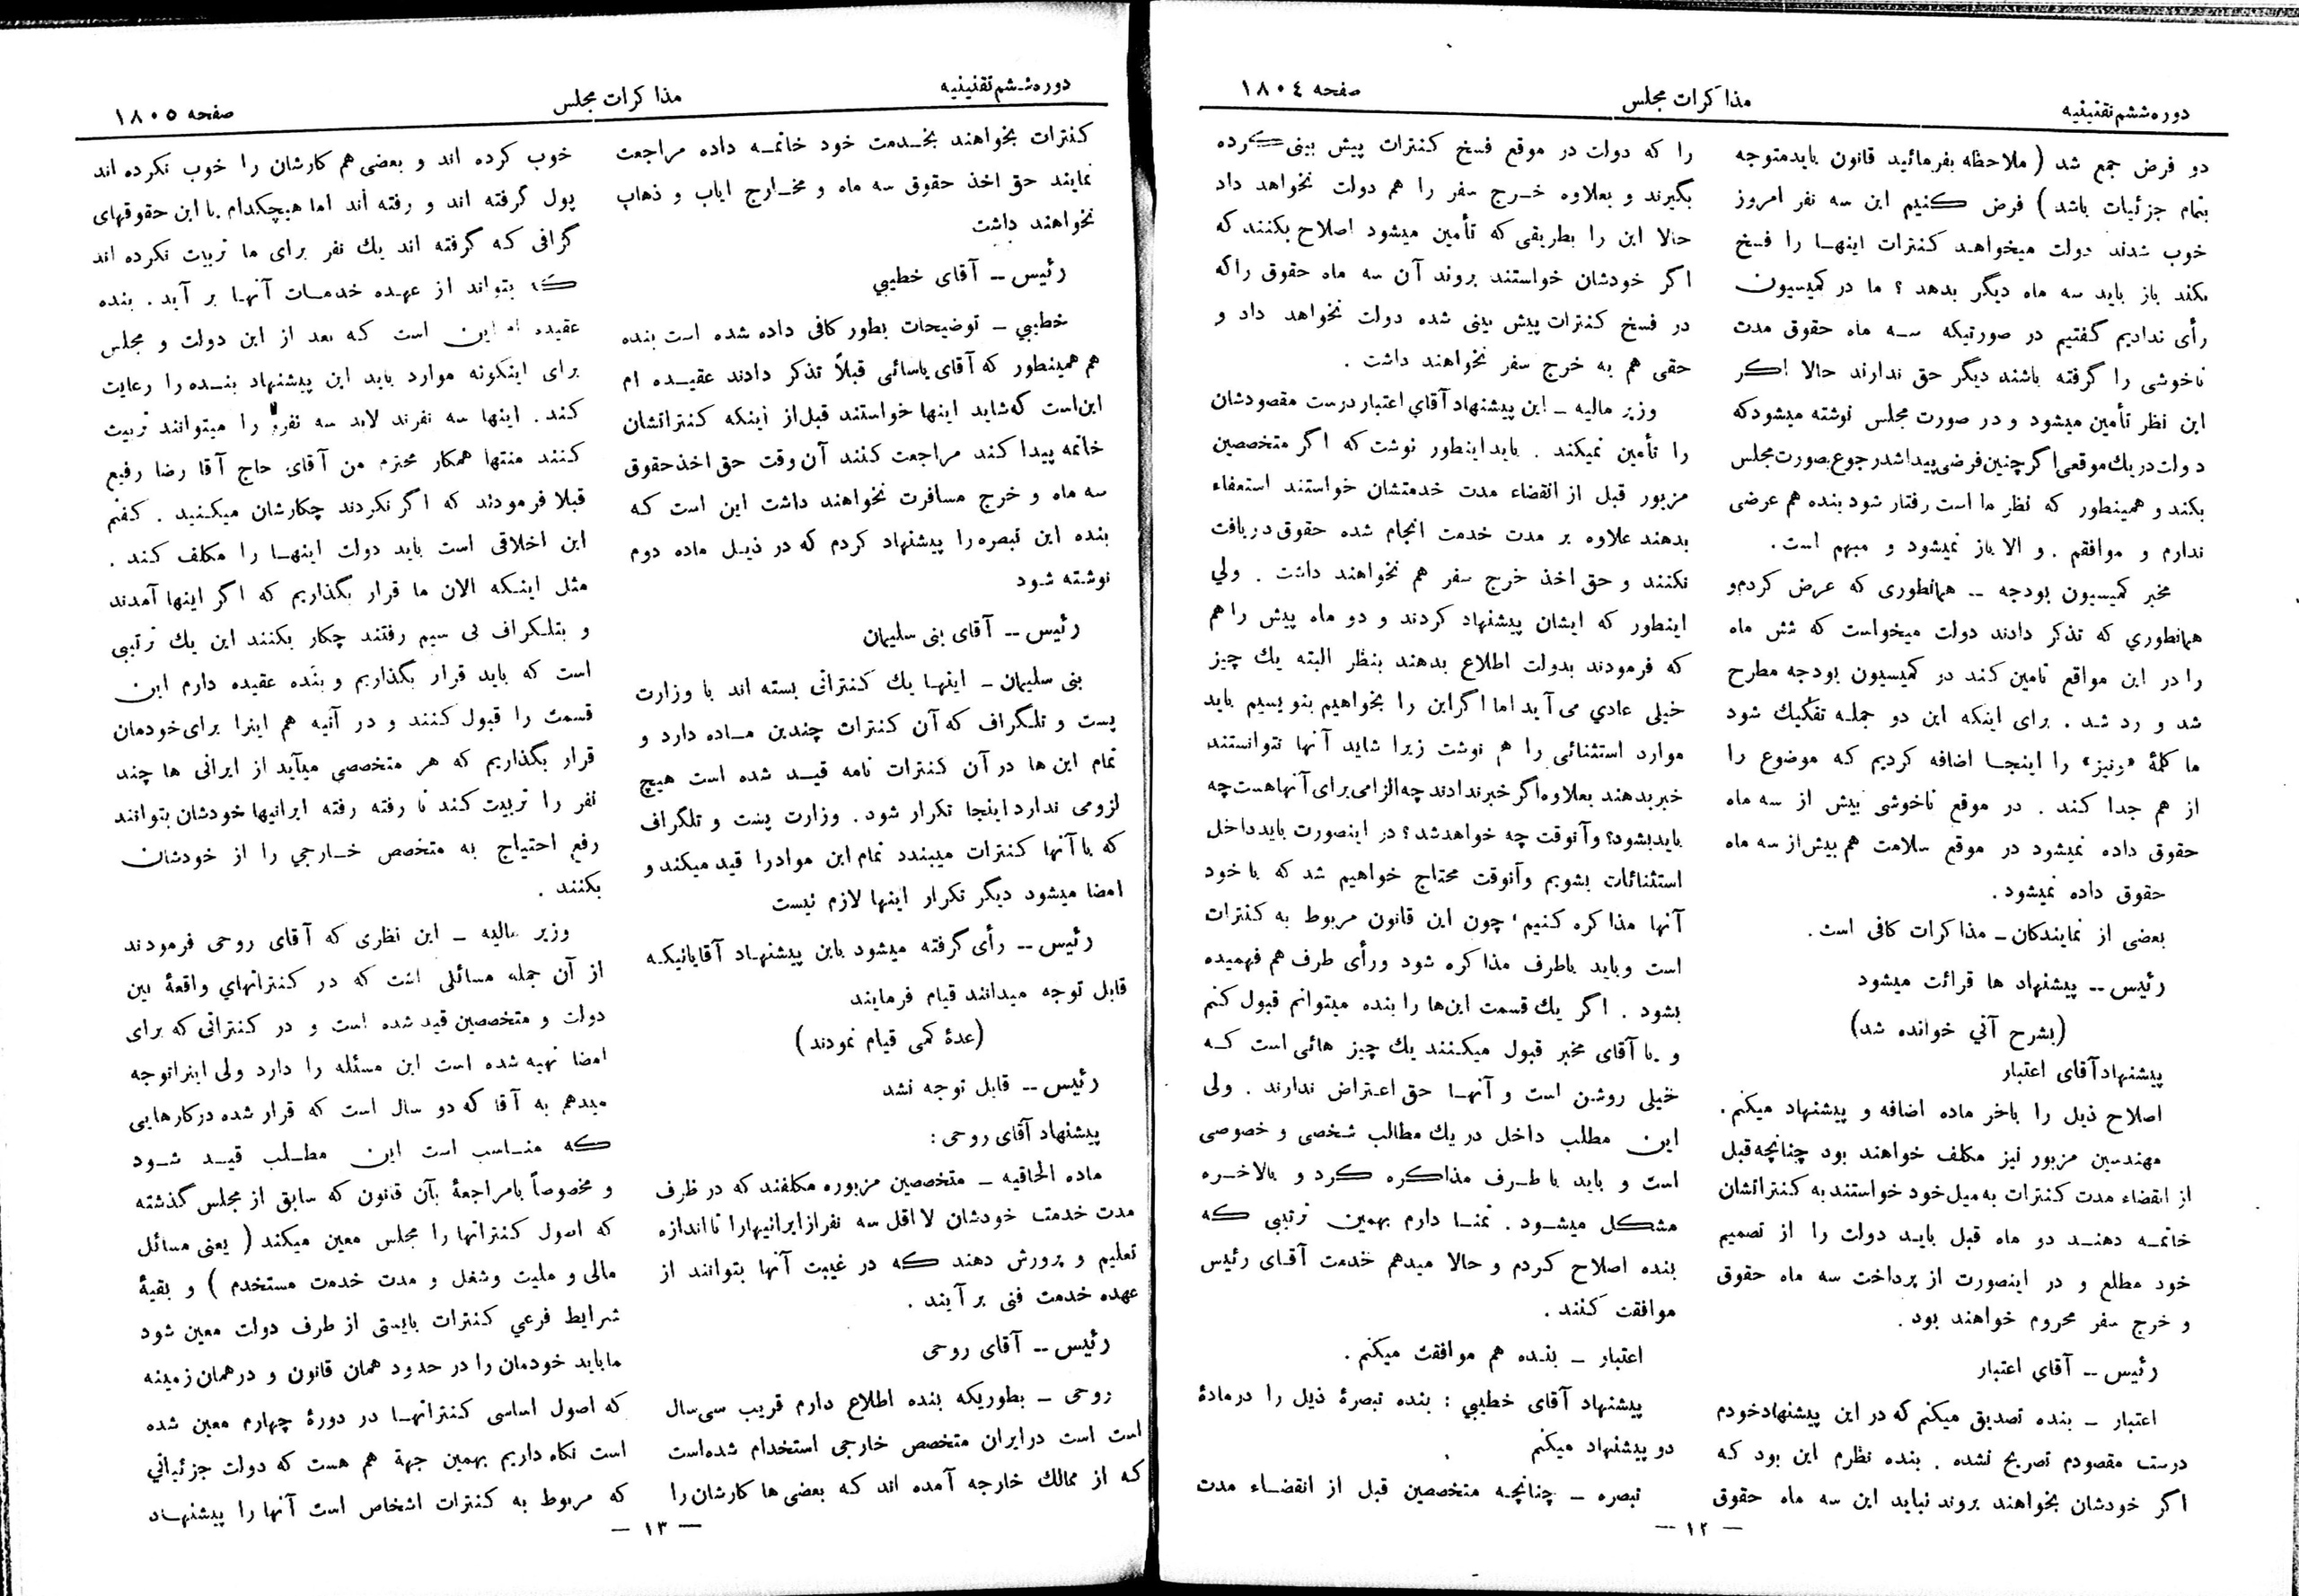 دوره ششم تقنینیه
مذاکرات مجلس
صفحه ۱۸۰۴
دو فرض جمع شد ( ملاحظه بفرمائید قانون باید متوجه
بتمام جزئیات باشد ) فرض کنیم این سه نفر امروز
خوب شدند دولت میخواهد کنترات اینهـا را فسخ
بکند باز باید سه ماه دیگر بدهد ؟ ما در کمیسیون
رأی ندادیم گفتیم در صورتیکه سـه ماه حقوق مدت
ناخوشی را گرفته باشند دیگر حق ندارند حالا اگر
این نظر تأمین میشود و در صورت مجلس نوشته میشود که
دولت در یك موقعی اگر چنین فرضی پیدا شد رجوع بصورت مجلس
بکند و همینطور که نظر ما است رفتار شود بنده هم عرضی
ندارم و موافقم . و الا باز نمیشود و مبهم است .
مخبر کمیسیون بودجه -- همانطوری که عرض کردم و
همانطوری که تذکر دادند دولت میخواست که شش ماه
را در این مواقع تامین کند در کمیسیون بودجه مطرح
شد و رد شد . برای اینکه این دو جمله تفکیك شود
ما کلمهٔ «ونیز» را اینجـا اضافه کردیم که موضوع را
از هم جدا کند . در موقع ناخوشی بیش از سه ماه
حقوق داده نمیشود در موقع سلامت هم بیش از سه ماه
حقوق داده نمیشود .
بعضی از نمایندکان ـ مذاکرات کافی است .
رئیس -- پیشنهاد ها قرائت میشود
(بشرح آتی خوانده شد)
پیشنهاد آقای اعتبار
اصلاح ذیل را باخر ماده اضافه و پیشنهاد میکنم .
مهندسین مزبور نیز مکلف خواهند بود چنانچه قبل
از انقضاء مدت کنترات به میل خود خواستند به کنتراتشان
خاتمـه دهنـد دو ماه قبل بایـد دولت را از تصمیم
خود مطلع و در اینصورت از پرداخت سه ماه حقوق
و خرج سفر محروم خواهند بود .
رئیس -- آقای اعتبار
اعتبار ـ بنده تصدیق میکنم که در این پیشنهاد خودم
درست مقصودم تصریح نشده . بنده نظرم این بود کـه
اگر خودشان بخواهند بروند نباید این سه ماه حقوق
را که دولت در موقع فسخ کنترات پیش بینی کرده
بگیرند و بعلاوه خـرج سفر را هم دولت نخواهد داد
حالا این را بطریقی که تأمین میشود اصلاح بکنند که
اگر خودشان خواستند بروند آن سه ماه حقوق را که
در فسخ کنترات پیش بینی شده دولت نخواهد داد و
حقی هم به خرج سفر نخواهند داشت .
وزیر مالیه ـ این پیشنهاد آقای اعتبار درست مقصودشان
را تأمین نمیکند . باید اینطور نوشت که اگر متخصصین
مزبور قبل از انقضاء مدت خدمتشان خواستند استعفاء
بدهند علاوه بر مدت خدمت انجام شده حقوق دریافت
نکنند و حق اخذ خرج سفر هم نخواهند داشت . ولی
اینطور که ایشان پیشنهاد کردند و دو ماه پیش را هم
که فرمودند بدولت اطلاع بدهند بنظر البته یك چیز
خیلی عادی می آید اما اگر این را بخواهیم بنویسیم باید
موارد استثنائی را هم نوشت زیرا شاید آنها نتوانستند
خبر بدهند بعلاوه اگر خبر ندادند چه الزامی برای آنها هست چه
باید بشود ؟ و آنوقت چه خواهد شد ؟ در اینصورت باید داخل
استثنائات بشویم و آنوقت محتاج خواهیم شد که با خود
آنها مذاکره کنیم، چون این قانون مربوط به کنترات
است و باید باطرف مذاکره شود و رأی طرف هم فهمیده
بشود . اگر یك قسمت این‌ها را بنده میتوانم قبول کنم
و با آقای مخبر قبول میکـنند یك چیز هائی است کـه
خیلی روشن است و آنهـا حق اعتراض ندارند . ولی
این مطلب داخل در یك مطالب شخصی و خصوصی
است و باید با طـرف مذاکره کرد و بالاخـره
مشکل میشـود . تمنـا دارم بهمین ترتیبی که
بنده اصلاح کردم و حالا میدهم خدمت آقـای رئیس
موافقت کنند .
اعتبار ـ بنـده هم موافقت میکنم .
پیشنهاد آقای خطیبی : بنده تبصرهٔ ذیل را در مادهٔ
دو پیشنهاد میکنم
تبصره ـ چنانچـه متخصصین قبل از انقضـاء مدت
— ۱۲ —
دوره ششم تقنینیه
مذاکرات مجلس
صفحه ۱۸۰۵
کنترات بخواهند بخـدمت خود خاتمـه داده مراجعت
نمایند حق اخذ حقوق سه ماه و مخـارج ایاب و ذهاب
نخواهند داشت
رئیس -- آقای خطیبی
خطیبی ـ توضیحات بطور کافی داده شده است بنده
هم همینطور که آقای یاسائی قبلاً تذکر دادند عقیـده ام
این‌است که شاید اینها خواستند قبل از اینکه کنتراتشان
خاتمه پیدا کند مراجعت کنند آن وقت حق اخذ حقوق
سه ماه و خرج مسافرت نخواهند داشت این است کـه
بنده این تبصره را پیشنهاد کردم که در ذیـل ماده دوم
نوشته شود
رئیس -- آقای بنی سلیمان
بنی سلیمان ـ اینهـا یك کنتراتی بسته اند با وزارت
پست و تلگراف که آن کنترات چندین مـاده دارد و
تمام این ها در آن کنترات نامه قیـد شده است هیچ
لزومی ندارد اینجا تکرار شود . وزارت پست و تلگراف
که با آنها کنترات میبندد تمام این مواد را قید میکند و
امضا میشود دیگر تکرار اینها لازم نیست
رئیس -- رأی گرفته میشود باین پیشنهـاد آقایانیکـه
قابل توجه میدانند قیام فرمایند
(عدهٔ کمی قیام نمودند)
رئیس -- قابل توجه نشد
پیشنهاد آقای روحی :
ماده الحاقیه ـ متخصصین مزبوره مکلفند که در ظرف
مدت خدمت خودشان لااقل سه نفر از ایرانیها را تا اندازه
تعلیم و پرورش دهند که در غیبت آنها بتوانند از
عهده خدمت فنی بر آیند .
رئیس -- آقای روحی
روحی ـ بطوریکه بنده اطلاع دارم قریب سی‌سال
است است در ایران متخصص خارجی استخدام شده‌است
که از ممالك خارجه آمده اند کـه بعضی ها کارشان را
خوب کرده اند و بعضی هم کارشان را خوب نکرده اند
پول گرفته اند و رفته اند اما هیچکدام با این حقوقهای
گزافی کـه گرفته اند یك نفر برای ما تربیت نکرده اند
که بتواند از عهـده خدمـات آنهـا بر آید . بنده
عقیده ام این است کـه بعد از این دولت و مجلس
برای اینگونه موارد باید این پیشنهاد بنـده را رعایت
کند . اینها سه نفرند لابد سه نفر را میتوانند تربیت
کنند منتها همکار محترم من آقای حاج آقا رضا رفیع
قبلا فرمودند که اگر نکردند چکارشان میکـنید . گفتم
این اخلاقی است باید دولت اینهـا را مکلف کند .
مثل اینـکه الان ما قرار بگذاریم که اگر اینها آمدند
و بتلـگراف بی سیم رفتند چکار بکنند این یك ترتیبی
است که باید قرار بگذاریم و بنده عقیده دارم این
قسمت را قبول کنند و در آتیه هم اینرا برای خودمان
قرار بگذاریم که هر متخصصی میآید از ایرانی ها چند
نفر را تربیت کند تا رفته رفته ایرانیها خودشان بتوانند
رفع احتیاج به متخصص خـارجی را از خودشان
بکنند .
وزیر مالیه ـ این نظری که آقای روحی فرمودند
از آن جمله مسائلی است که در کنتراتهای واقعهٔ بین
دولت و متخصصین قید شده است و در کنتراتی که برای
امضا تهیه شده است این مسئله را دارد ولی اینرا توجه
میدهم به آقا که دو سال است که قرار شده در کارهایی
که منـاسب است این مطـلب قیـد شـود
و مخصوصاً بامراجعهٔ بآن قانون که سابق از مجلس گذشته
که اصول کنتراتها را مجلس معین میکند ( یعنی مسائل
مالی و ملیت و شغل و مدت خدمت مستخدم ) و بقیهٔ
شرایط فرعی کنترات بایستی از طرف دولت معین شود
ما باید خودمان را در حدود همان قانون و در همان زمینه
که اصول اساسی کنتراتهـا در دورهٔ چهارم معین شده
است نگاه داریم بهمین جهة هم هست که دولت جزئیاتی
که مربوط به کنترات اشخاص است آنها را پیشنهـاد
— ۱۳ —